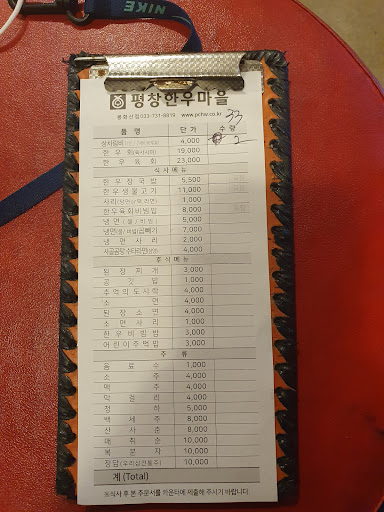 NIKE
평창한우마을
봉화산점 033-731-8819 www.pchw.co.kr
33
품 명 단 가 수 량
상차림비 4,000 2
한 우 회(육사시미) 19,000
한 우 육 회 23,000
식 사 메 뉴
한 우 장 국 밥 5,500
한우생불고기 11,000
사리(당면,당덕,라면) 1,000
한우육회비빔밥 8,000
냉 면 ( 물 / 비 빔 ) 5,000
냉면(물/비빔)곱빼기 7,000
냉 면 사 리 2,000
사골곰탕수타라면 4,000
후 식 메 뉴
된 장 찌 개 3,000
공 깃 밥 1,000
추억의도시락 4,000
소 면 4,000
된 장 소 면 4,000
소 면 사 리 1,000
한 우 비 빔 밥 3,000
어린이주먹밥 3,000
주 류
음 료 수 1,000
소 주 4,000
맥 주 4,000
막 걸 리 4,000
청 하 5,000
백 세 주 8,000
산 사 춘 8,000
매 취 순 10,000
복 분 자 10,000
정담(우리쌀전통주) 10,000
계 (Total)
※식사 후 본 주문서를 카운터에 제출해 주시기 바랍니다.